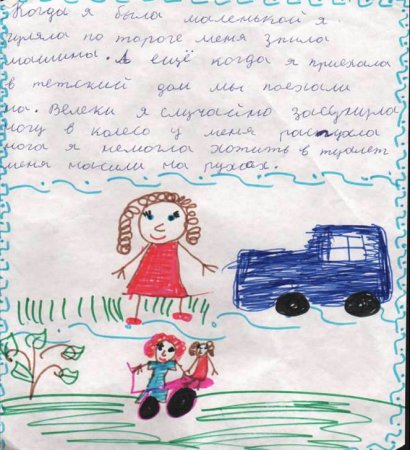 Когда я была маленькой я
гуляла по тороге меня збила
машина. А ещё когда я приехала
в тетский дом мы поехали
на. Велеки я случайно засунула
ногу в колесо у меня распухла
нога я немогла хотить в туалет
меня насили на руках.